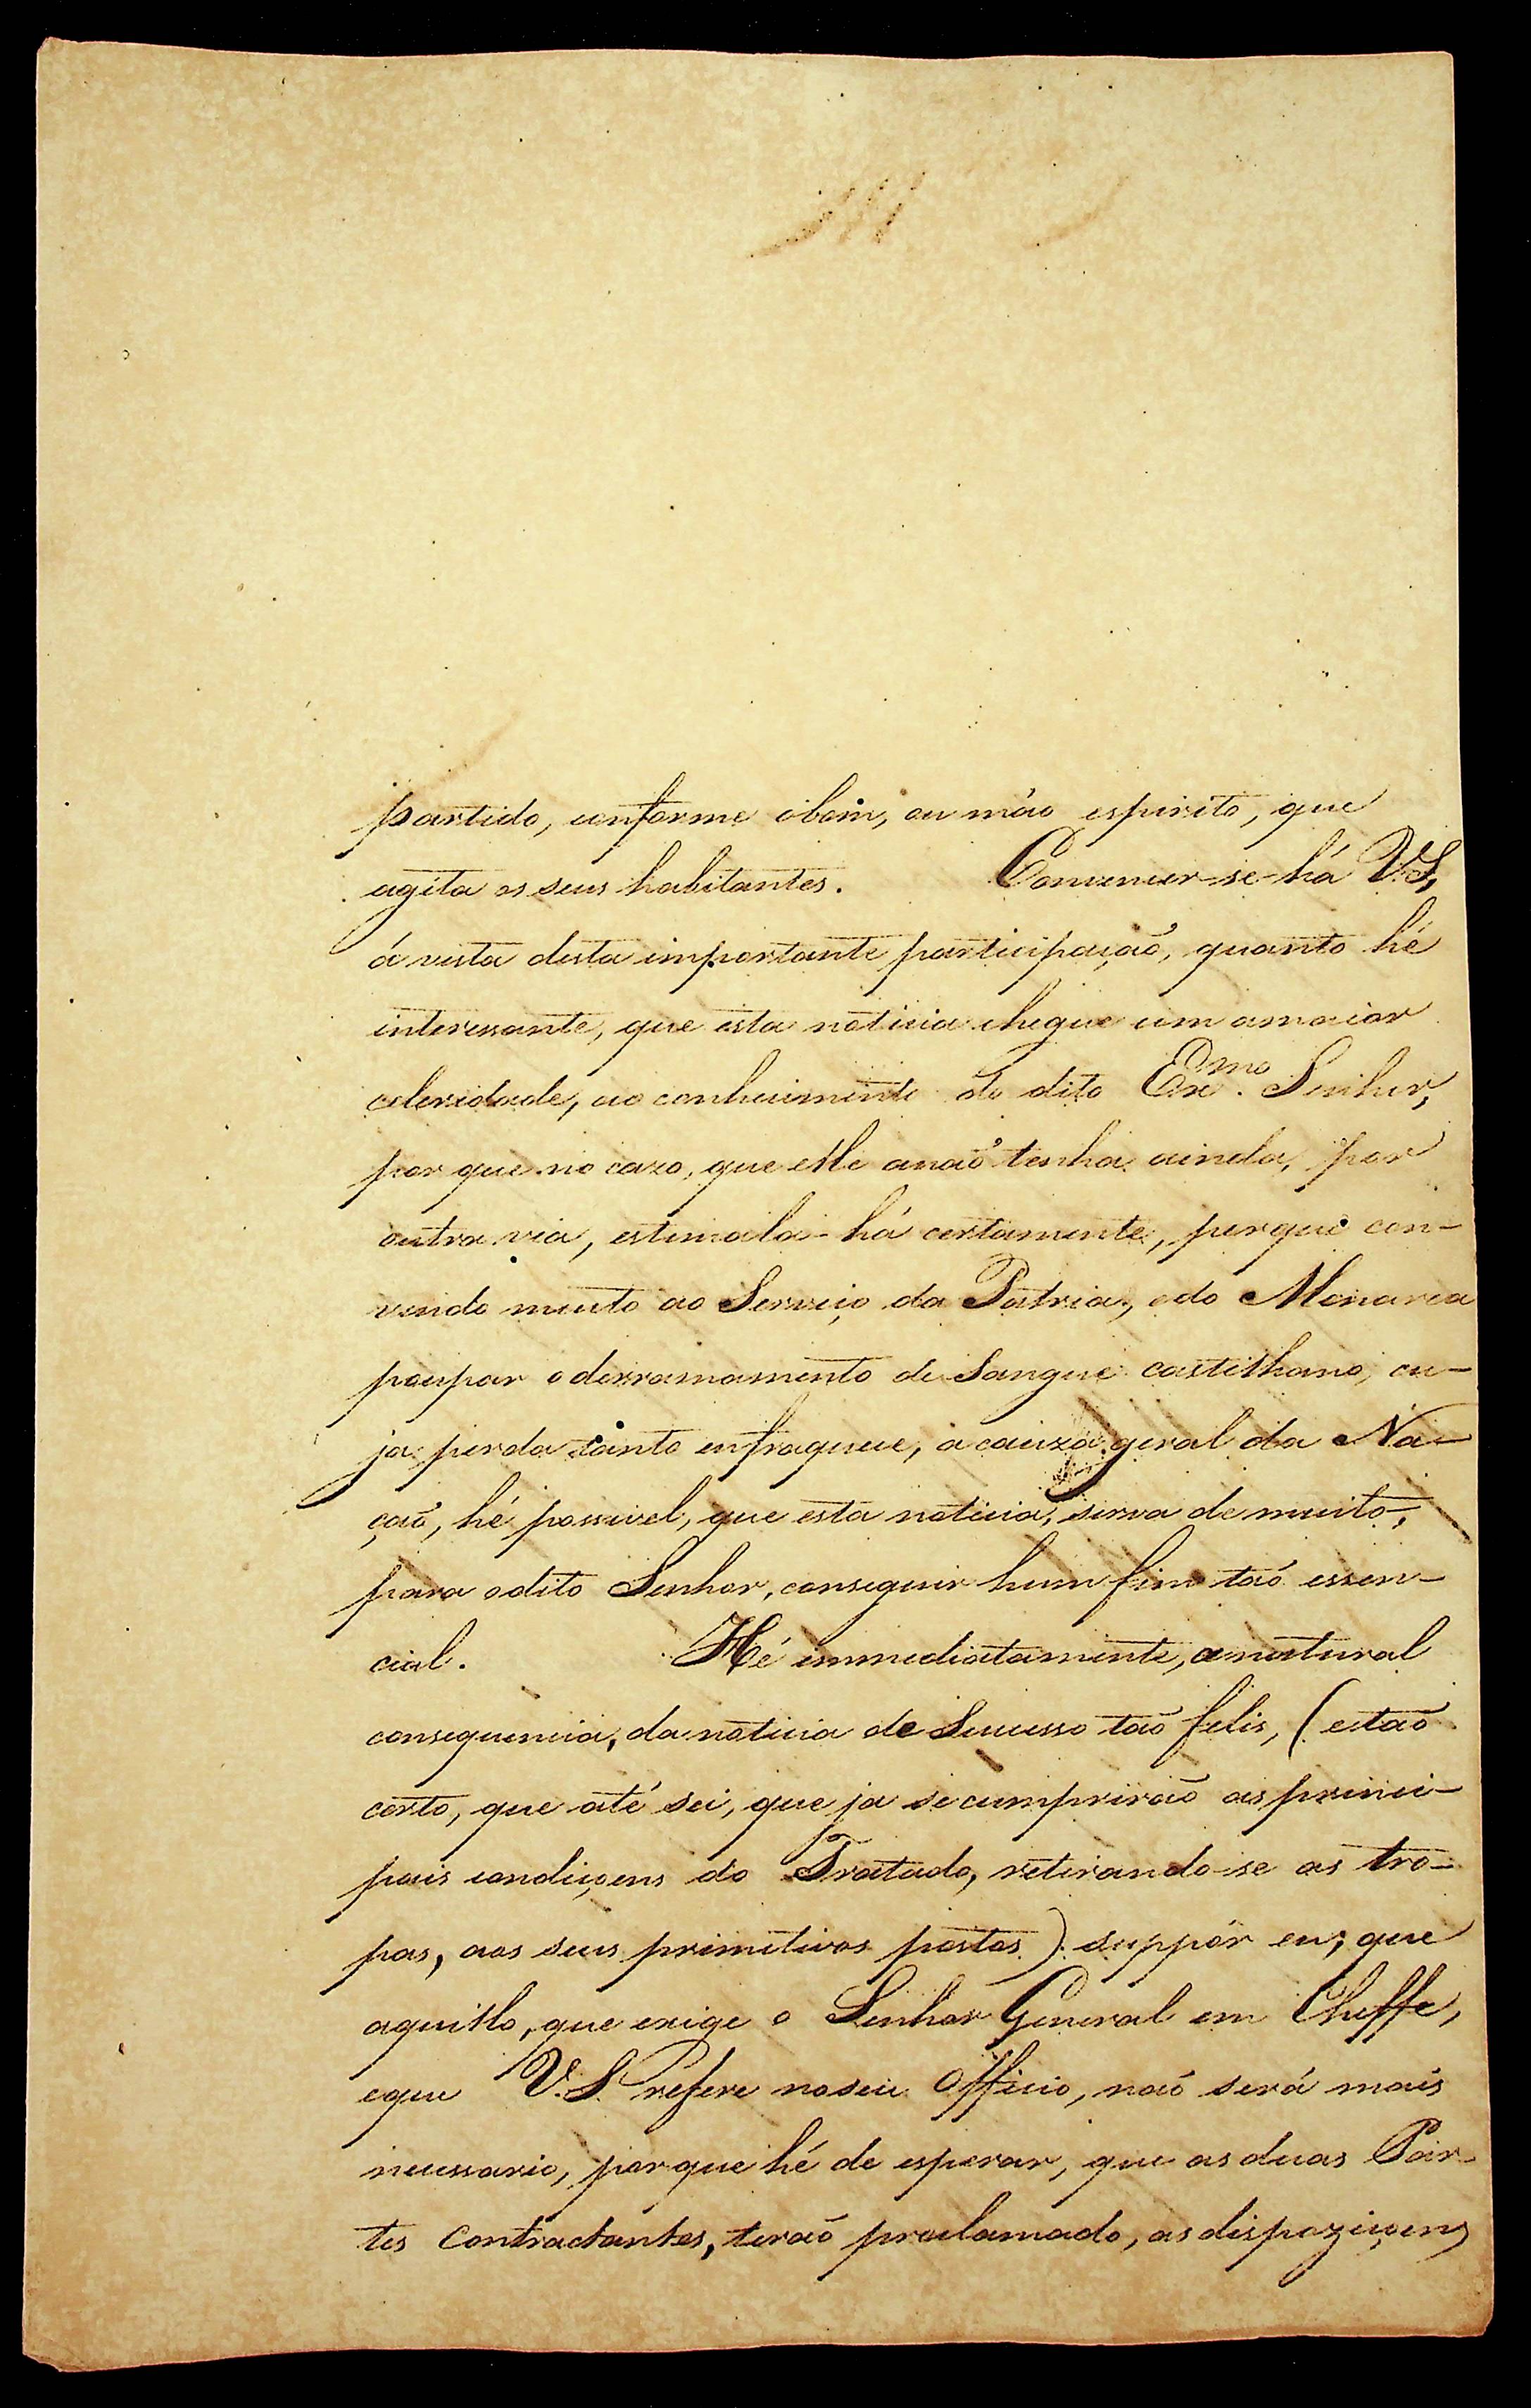 partido, conforme obom, ou máo espirito, que
agita os seus habitantes. Convencer-se-há V.S,
á vista desta importante participaçaõ, quanto hé
interessante, que esta noticia chegue com amaior
celeridade, ao conhecimento do dito Ex.mo Senhor,
por que no cazo, que elle anaõ tenha ainda, por
outra via, estimala-há certamente, porque con-
vendo muito ao Serviço da Patria, edo Monarca
poupar oderramamento de Sangue castelhano, cu-
ja perda tanto enfraquece, a cauza geral da Na-
çaõ, hé possivel, que esta noticia, sirva de muito,
para odito Senhor, conseguir hum fim taõ essen-
cial. Hé immediatamente, a natural
consequencia, da noticia de Sucesso taõ felis, (etaõ
certo, que até sei, que ja se cumpriraõ as princi-
pais condiçoens do Tratado, retirando-se as tro-
pas, aos seus primitivos postos) suppôr eu, que
aquillo, que exige o Senhor General em Cheffe,
eque V.S. refere noseu Officio, naõ será mais
necessario, porque hé de esperar, que as duas Par-
tes Contractantes, teraõ proclamado, as dispoziçoens